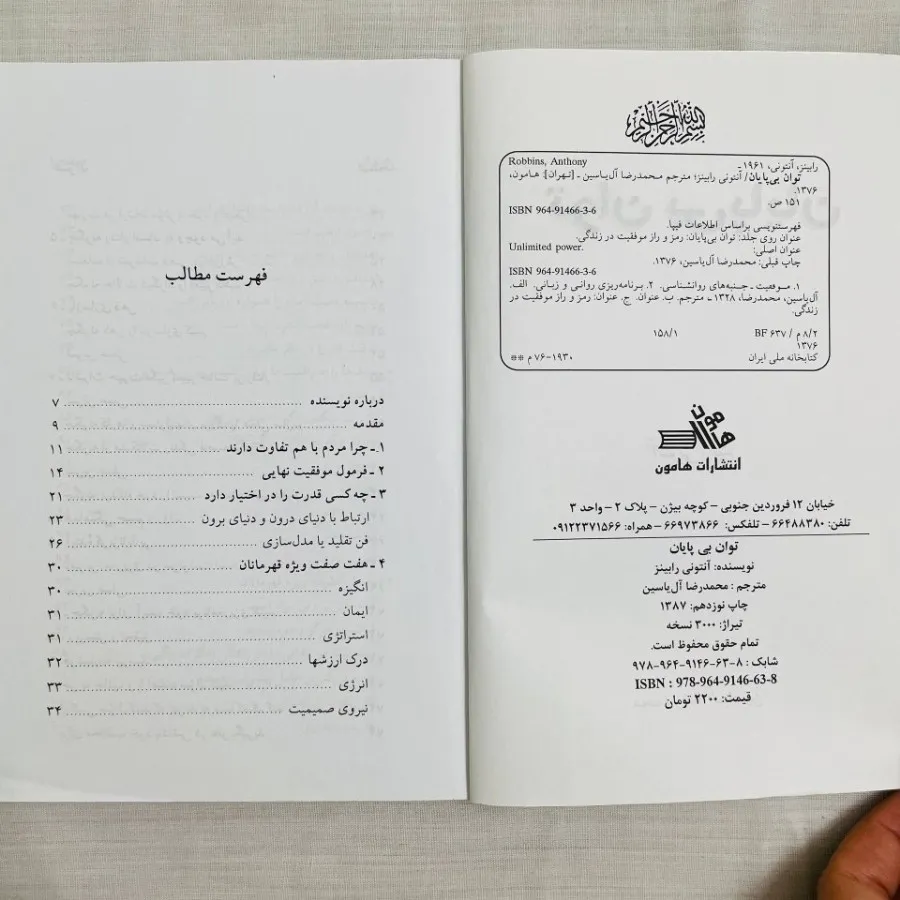 بسم الله الرحمن الرحیم
Robbins, Anthony
رابینز، آنتونی، ۱۹۶۱ -
توان بی‌پایان/ آنتونی رابینز؛ مترجم محمدرضا آل‌یاسین ـ [تهران]: هامون،
۱۳۷۶.
۱۵۱ ص.
ISBN 964-91466-3-6
فهرستنویسی براساس اطلاعات فیپا.
عنوان روی جلد: توان بی‌پایان: رمز و راز موفقیت در زندگی.
عنوان اصلی: Unlimited power.
چاپ قبلی: محمدرضا آل‌یاسین، ۱۳۷۶.
ISBN 964-91466-3-6
۱. موفقیت ـ جنبه‌های روانشناسی. ۲. برنامه‌ریزی روانی و زبانی. الف.
آل‌یاسین، محمدرضا، ۱۳۲۸ ـ مترجم. ب. عنوان. ج. عنوان: رمز و راز موفقیت در
زندگی.
۱۵۸/۱ BF ۶۳۷ / م ۸/۲
۱۳۷۶
کتابخانه ملی ایران ** م ۷۶-۱۹۳۰
هامون
انتشارات هامون
خیابان ۱۲ فروردین جنوبی – کوچه بیژن – پلاک ۲ – واحد ۳
تلفن: ۶۶۴۸۸۳۸۰ – تلفکس: ۶۶۹۷۳۸۶۶ – همراه: ۰۹۱۲۲۳۷۱۵۶۶
توان بی پایان
نویسنده: آنتونی رابینز
مترجم : محمدرضا آل‌یاسین
چاپ نوزدهم: ۱۳۸۷
تیراژ: ۳۰۰۰ نسخه
تمام حقوق محفوظ است.
شابک : ۸-۶۳-۹۱۴۶-۹۶۴-۹۷۸
ISBN : 978-964-9146-63-8
قیمت: ۲۲۰۰ تومان
فهرست مطالب
درباره نویسنده ........ ۷
مقدمه ........ ۹
۱ـ چرا مردم با هم تفاوت دارند ........ ۱۱
۲ ـ فرمول موفقیت نهایی ........ ۱۴
۳ ـ چه کسی قدرت را در اختیار دارد ........ ۲۱
ارتباط با دنیای درون و دنیای برون ........ ۲۳
فن تقلید یا مدل‌سازی ........ ۲۶
۴ ـ هفت صفت ویژه قهرمانان ........ ۳۰
انگیزه ........ ۳۰
ایمان ........ ۳۱
استراتژی ........ ۳۱
درک ارزشها ........ ۳۲
انرژی ........ ۳۳
نیروی صمیمیت ........ ۳۴